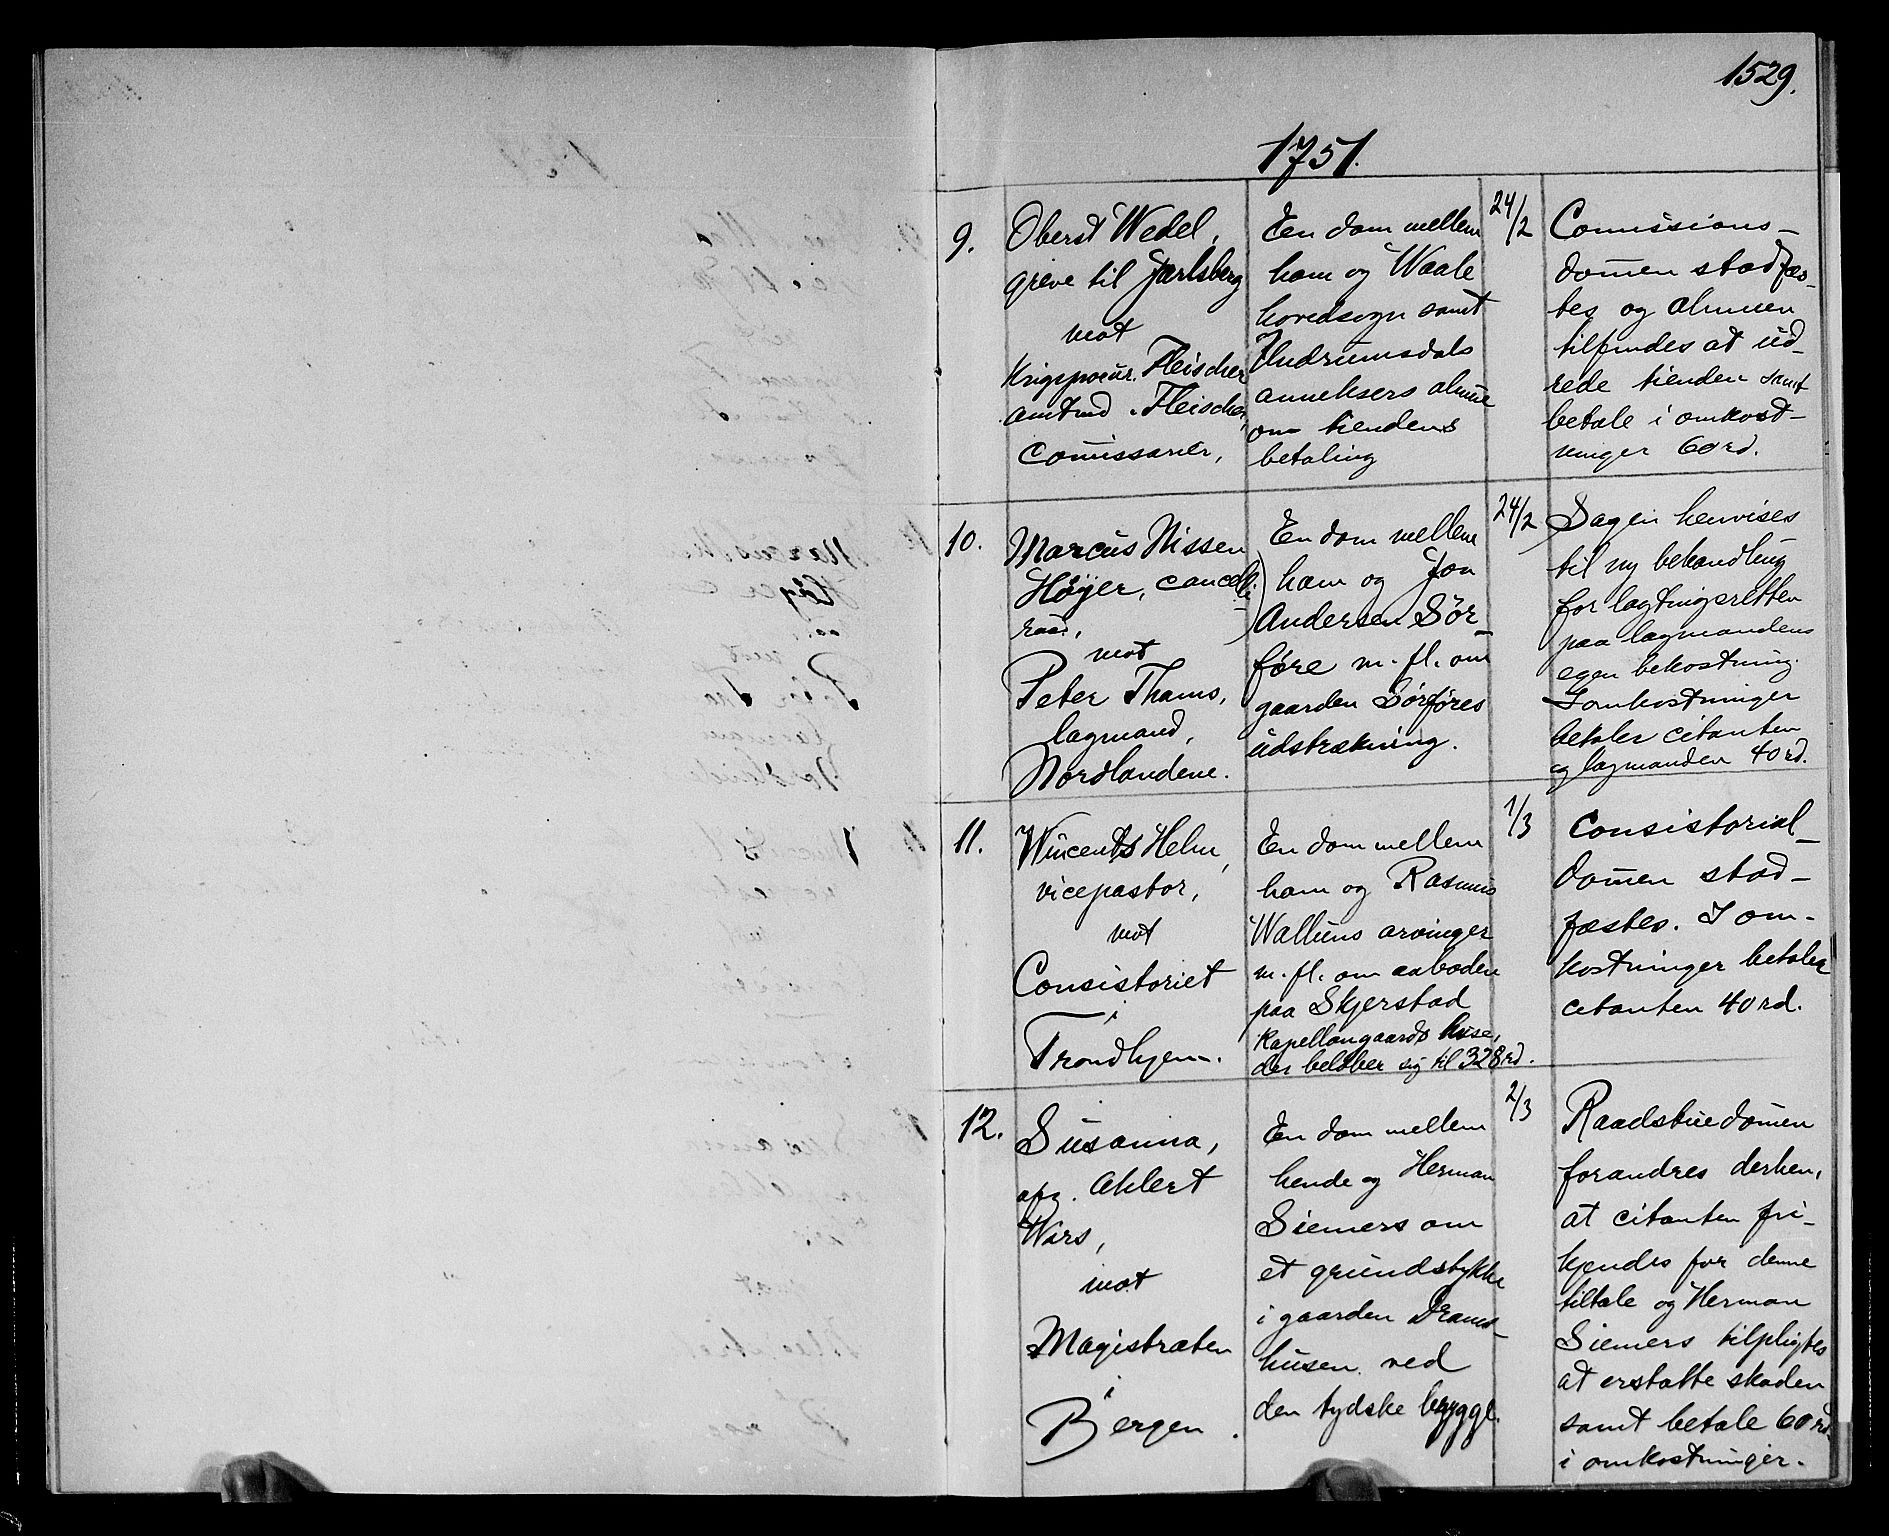 1529.
1751.
9.
Oberst Wedel,
greve til Jarlsberg
mot
Krigsprocur. Fleischer
amtmd. Fleischer,
Comissarier,
Een dom mellem
ham og Waale
hovedsogn samt
Undrumsdals
anneksers almue
om tiendens
betaling
24/2
Comissions-
domen stadfæs-
tes og almuen
tilfindes at ud-
rede tienden samt
betale i omkost-
ninger 60 rd.
10.
Marcus Nissen
Høyer, cancelli
raad,
mot
Peter Thams,
lagmand,
Nordlandene.
En dom mellem
ham og Jon
Andersen Sør-
føre m. fl. om
gaarden Sørføres
udstrækning.
24/2
Sagen henvises
til ny behandling
for lagtingsretten
paa lagmandens
egen bekostning.
I omkostninger
betaler citanten
og lagmanden 40 rd.
11.
Wincents Helm,
vicepastor,
mot
Consistoriet
i
Trondhjem.
En dom mellem
ham og Rasmus
Walluns arvinger
m. fl. om aaboden
paa Skjerstad
Kapellangaards huse,
der beløber sig til 328 rd.
1/3
Consistorial-
domen stad-
fæstes. I om-
kostninger betaler
citanten 40 rd.
12.
Susanna,
afg. Ahlert
Wars,
mot
Magistraten
i
Bergen.
En dom mellem
hende og Herman
Siemers om
et grundstykke
i gaarden Drams-
husen ved
den tydske brygge.
2/3
Raadstuedomen
forandres derhen,
at citanten fri-
kjendes for denne
tiltale og Herman
Siemers tilpligtes
at erstatte skaden
samt betale 60 rd.
i omkostninger.